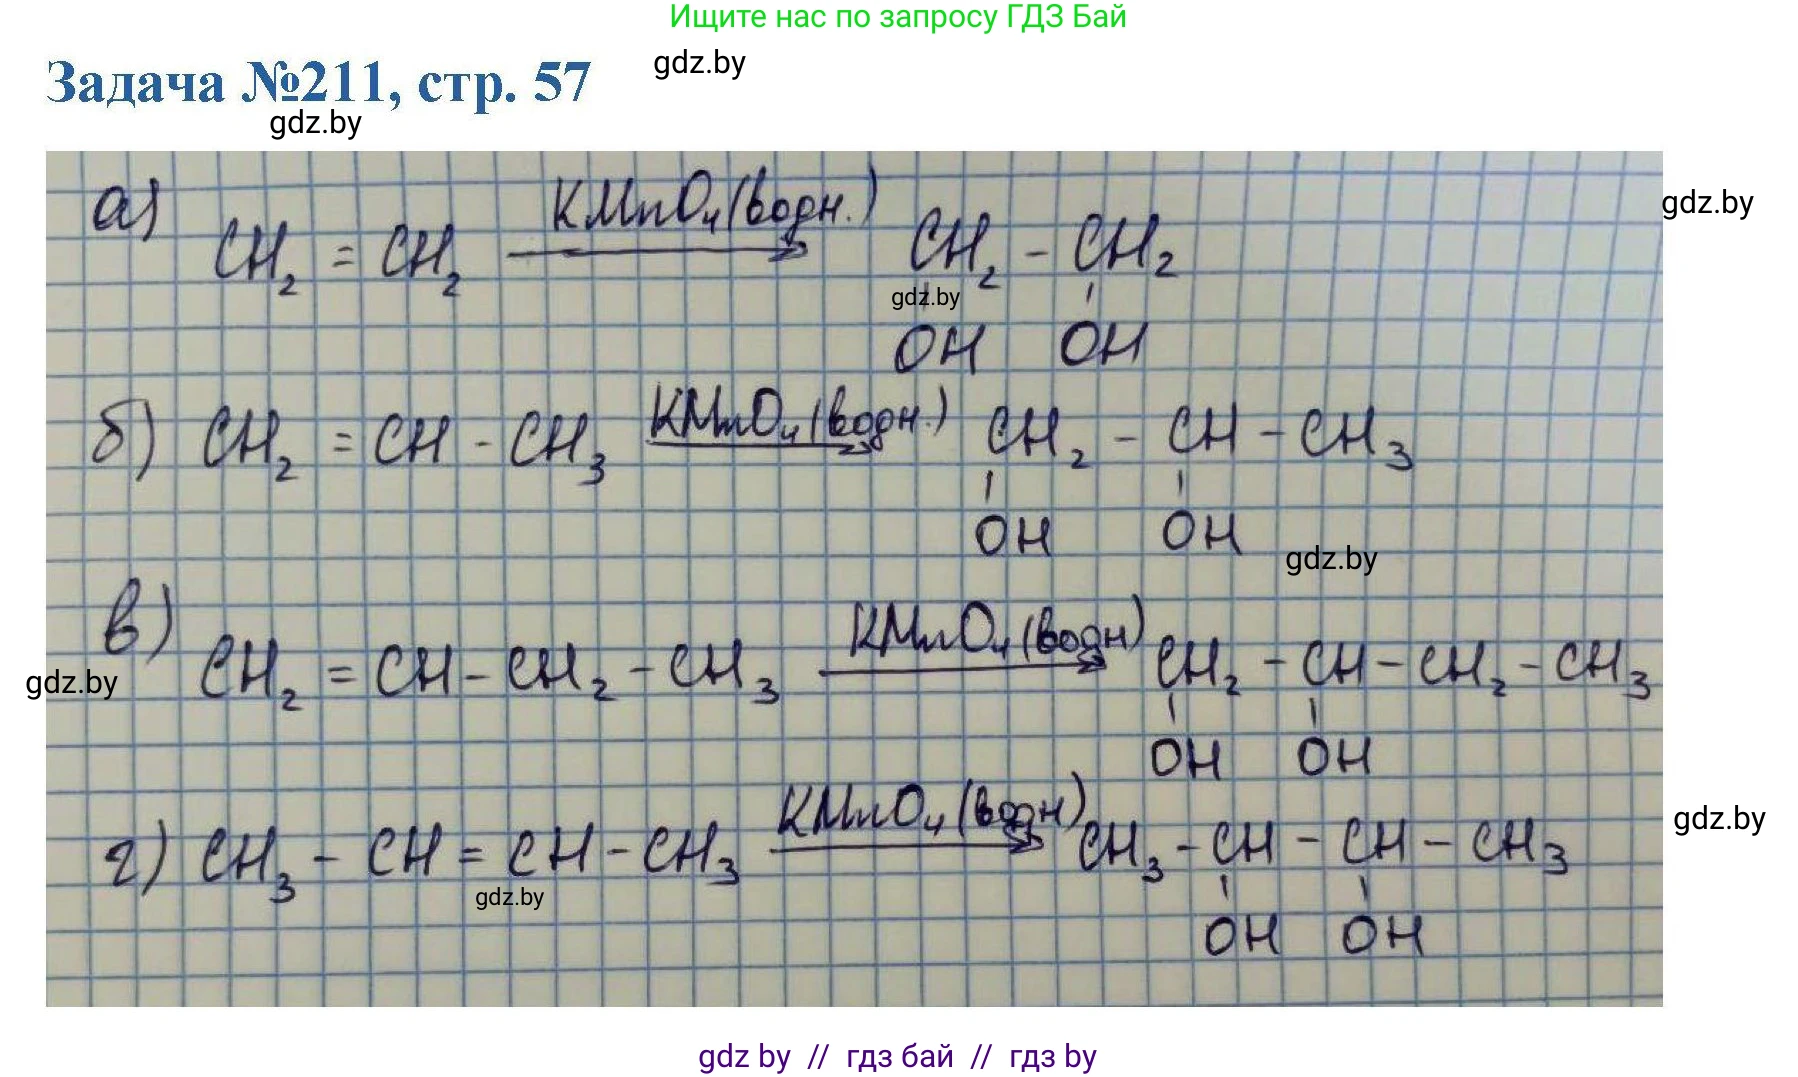 Ищите нас по запросу ГДЗ Бай
Задача №211, стр. 57
gdz.by
gdz.by
а) CH₂ = CH₂ KMnO₄ (водн.) → CH₂ - CH₂
gdz.by
gdz.by
OH OH
б) CH₂ = CH - CH₃ KMnO₄ (водн.) → CH₂ - CH - CH₃
OH OH
gdz.by
в) CH₂ = CH - CH₂ - CH₃ KMnO₄ (водн) → CH₂ - CH - CH₂ - CH₃
gdz.by
OH OH
г) CH₃ - CH = CH - CH₃ KMnO₄ (водн) → CH₃ - CH - CH - CH₃
gdz.by
gdz.by
OH OH
gdz by // гдз бай // гдз by